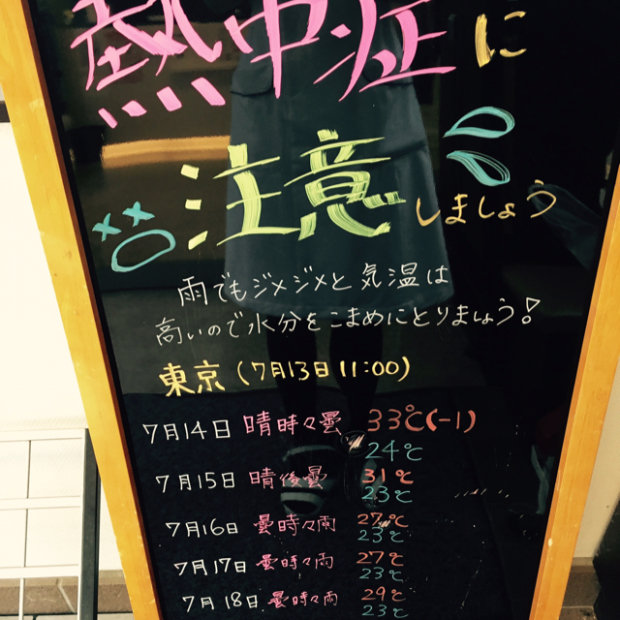 熱中症に
注意しましょう
雨でもジメジメと気温は
高いので水分をこまめにとりましょう!
東京(7月13日11:00)
7月14日 晴時々曇 33℃(-1)
24℃
7月15日 晴後曇 31℃
23℃
7月16日 曇時々雨 27℃
23℃
7月17日 曇時々雨 27℃
23℃
7月18日 曇時々雨 29℃
23℃